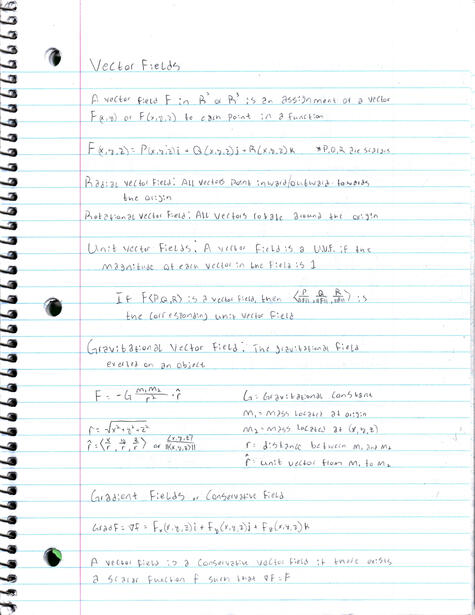 Vector Fields
A vector field F in R² or R³ is an assignment of a vector
F(x,y) or F(x,y,z) to each point in a function
F(x,y,z) = P(x,y,z)i + Q(x,y,z)j + R(x,y,z)k *P,Q,R are scalars
Radial vector field: All vectors point inward/outward towards
the origin
Rotational vector field: All vectors rotate around the origin
Unit vector fields: A vector field is a U.V.F. if the
magnitude of each vector in the field is 1
If F⟨P,Q,R⟩ is a vector field, then ⟨P/||F||, Q/||F||, R/||F||⟩ is
the corresponding unit vector field
Gravitational Vector Field: The gravitational field
exerted on an object
F = -G m₁m₂/r² · r̂ G = Gravitational Constant
m₁ = mass located at origin
m₂ = mass located at (x,y,z)
r = √x²+y²+z² r = distance between m₁ and m₂
r̂ = ⟨x/r, y/r, z/r⟩ or (x,y,z)/||(x,y,z)|| r̂ = unit vector from m₁ to m₂
Gradient Fields or Conservative Field
Grad F = ∇f = Fx(x,y,z)i + Fy(x,y,z)j + Fz(x,y,z)k
A vector field is a conservative vector field if there exists
a scalar function f such that ∇f = F